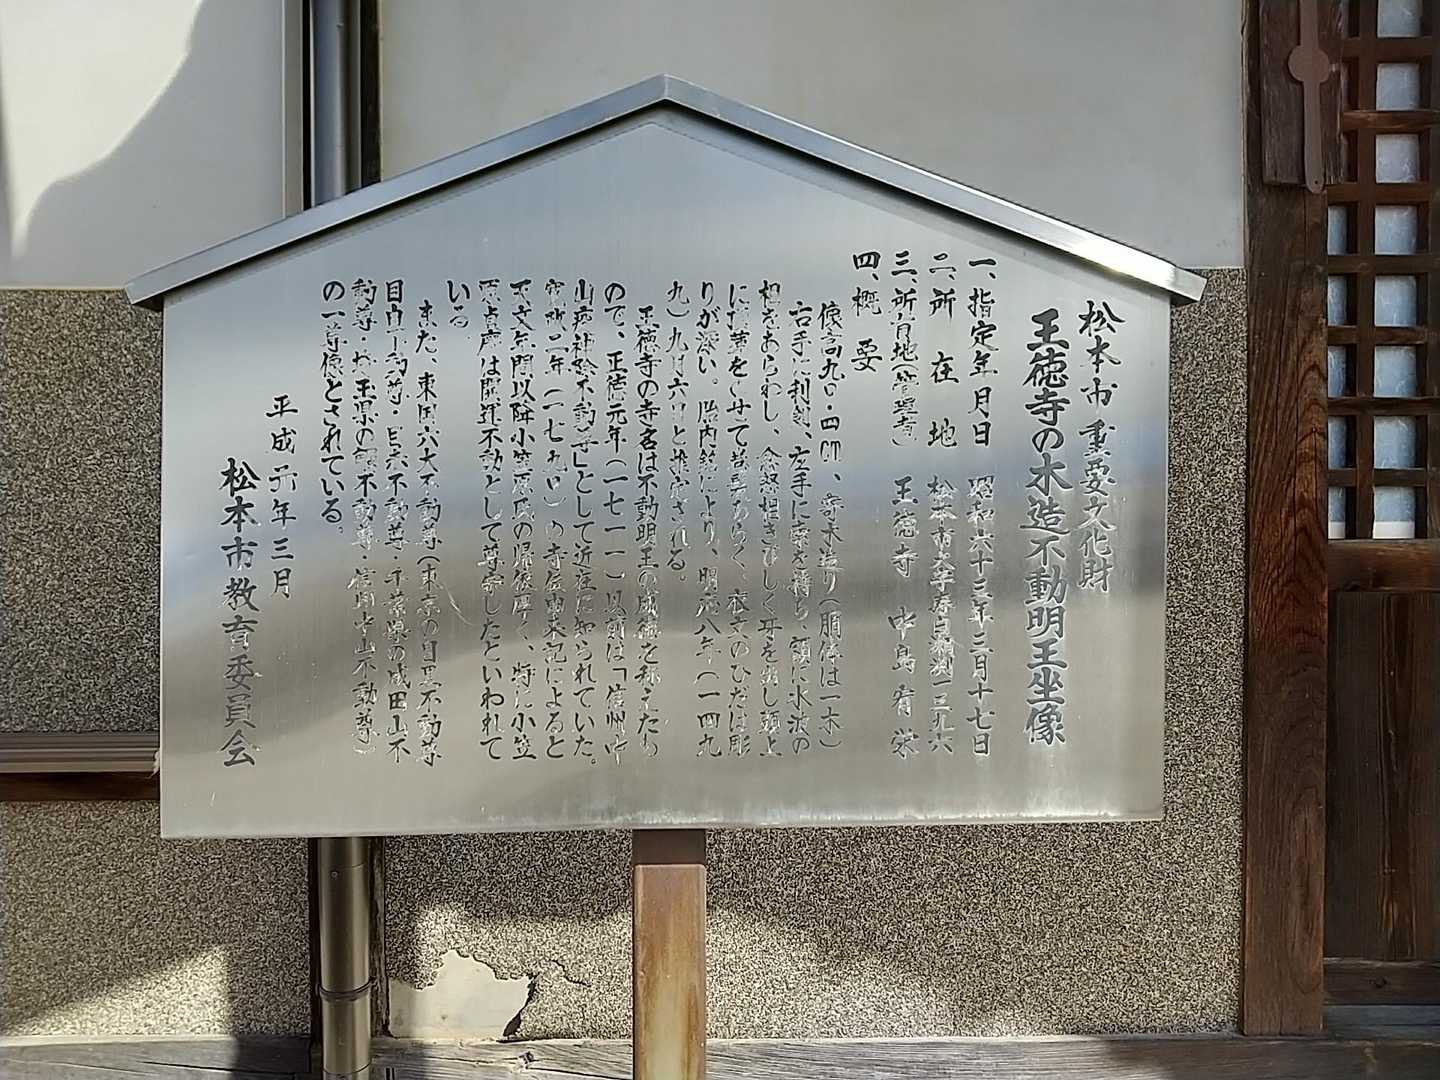 松本市重要文化財
王徳寺の木造不動明王坐像
一、指定年月日 昭和六十三年三月十七日
二、所在地 松本市大字寿白瀬渕一三九六
三、所有地(管理者) 王徳寺 中島宥栄
四、概要
像高九〇・四㎝、寄木造り(胴体は一木)
右手に利剣、左手に索を持ち、額に水波の
相をあらわし、忿怒相きびしく牙を出し頭上
に頂蓮をのせて
りが深い。胎内銘により、明応八年(一四九
九)九月六日と推定される。
王徳寺の寺名は不動明王の威徳を称えたも
ので、正徳元年(一七一一)以前は「信州中
山
として近在に知られていた。
寛政二年(一七九〇)の寺伝由来記によると
天文年間以降小笠原氏の帰依厚く、特に小笠
原貞慶は開運不動として尊崇したといわれて
いる。
また、東国六大不動尊(東京の目黒不動尊
目白不動尊・目赤不動尊・千葉県の成田山不
動尊・埼玉県の
不動尊・信州中山不動尊)
の一尊像とされている。
平成元年三月
松本市教育委員会